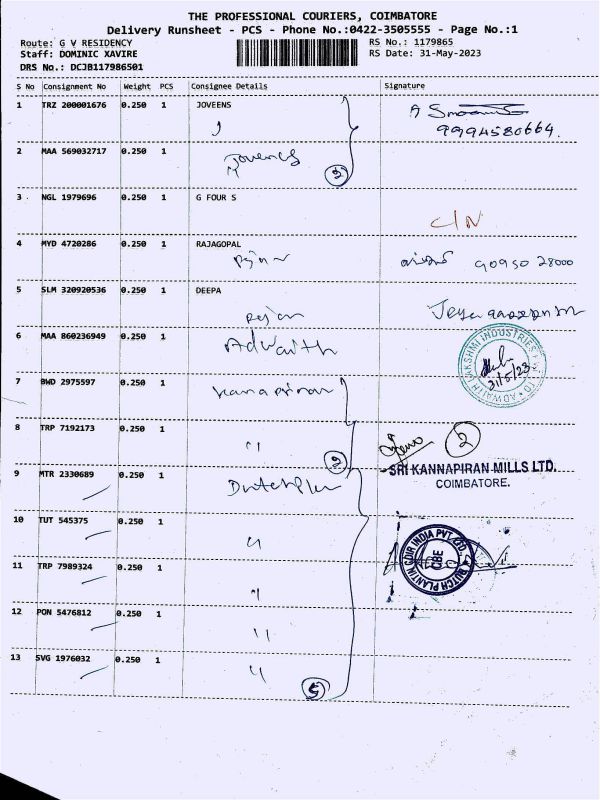 THE PROFESSIONAL COURIERS, COIMBATORE
Delivery Runsheet - PCS - Phone No.:0422-3505555 - Page No.:1
Route: G V RESIDENCY
RS No.: 1179865
Staff: DOMINIC XAVIRE
RS Date: 31-May-2023
DRS No.: DCJB117986501
S No Consignment No Weight PCS Consignee Details Signature
1 TRZ 200001676 0.250 1 JOVEENS
9994580664.
2 MAA 569032717 0.250 1 Joveens
2
3 NGL 1979696 0.250 1 G FOUR S
C/N
4 MYD 4720286 0.250 1 RAJAGOPAL
90950 28000
5 SLM 320920536 0.250 1 DEEPA
6 MAA 860236949 0.250 1 Adwaith
ADWAITH LAKSHMI INDUSTRIES
31/5/23
7 BWD 2975597 0.250 1 Kanapiran
8 TRP 7192173 0.250 1 "
2
2
SRI KANNAPIRAN MILLS LTD.
COIMBATORE.
9 MTR 2330689 0.250 1
10 TUT 545375 0.250 1 "
BUTCH PLANTIN COIR INDIA PVT. LTD.
CBE
11 TRP 7989324 0.250 1 "
12 PON 5476812 0.250 1 "
13 SVG 1976032 0.250 1 "
5